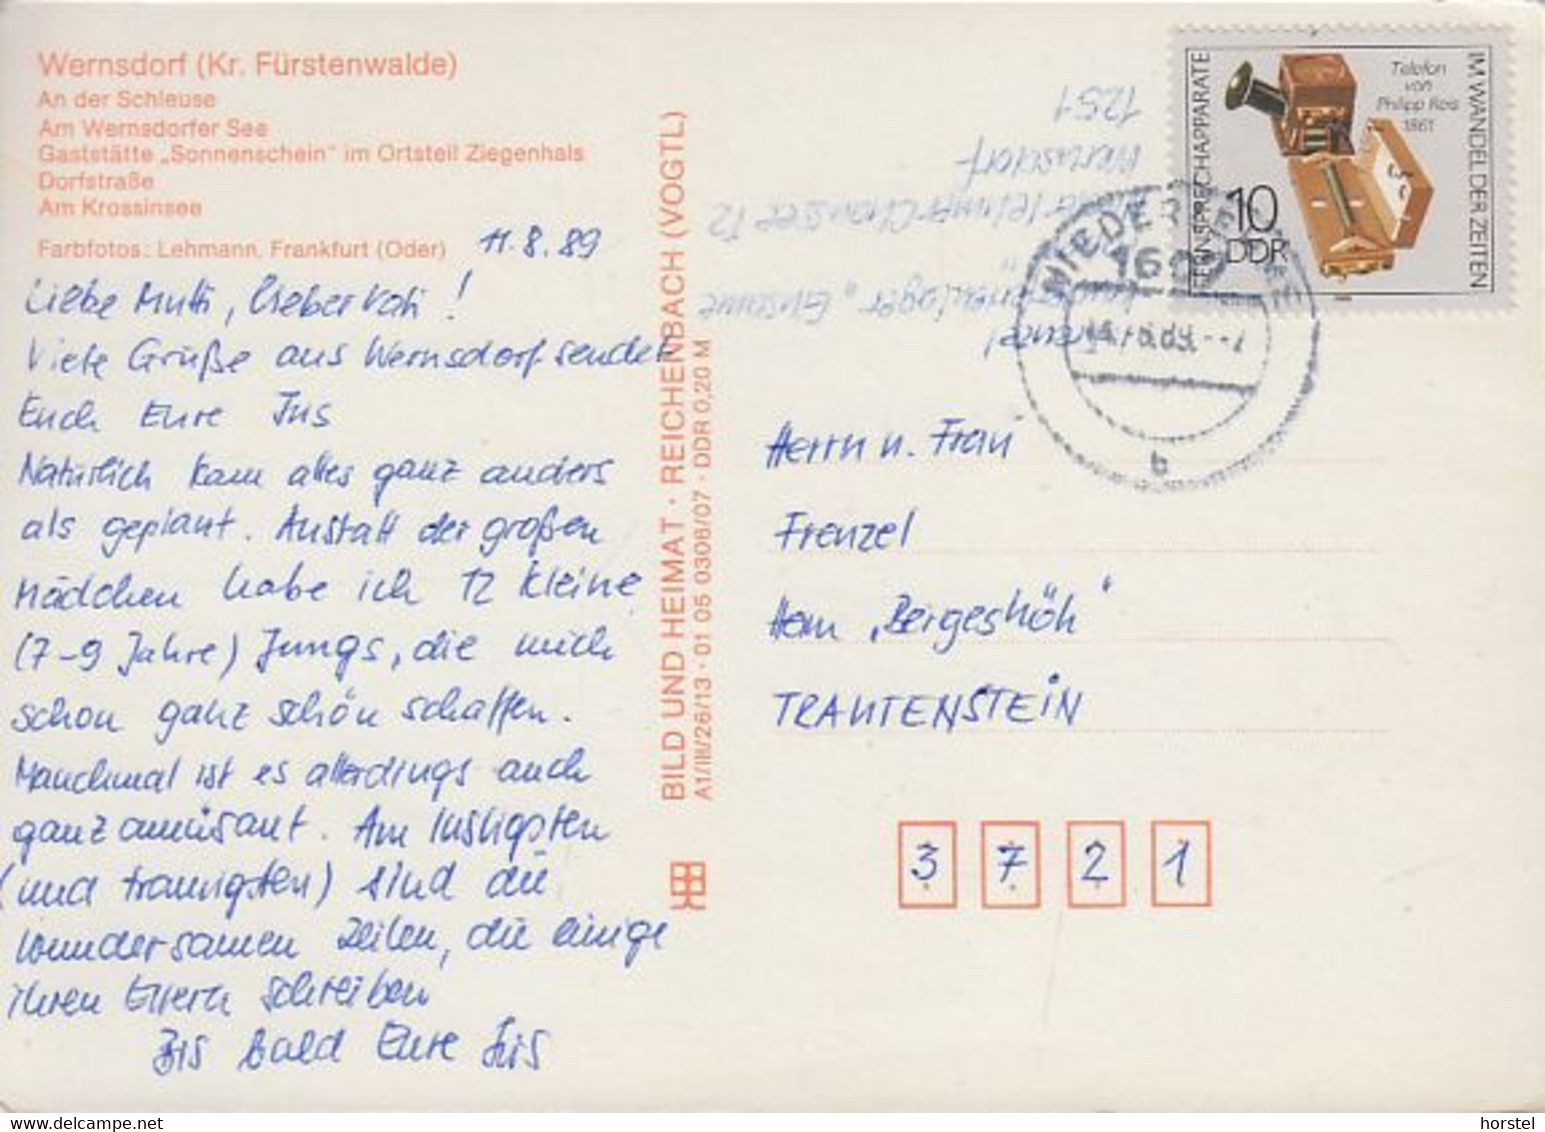 Wernsdorf (Kr. Fürstenwalde)
An der Schleuse
Am Wernsdorfer See
Gaststätte „Sonnenschein" im Ortsteil Ziegenhals
Dorfstraße
Am Krossinsee
Farbfotos: Lehmann, Frankfurt (Oder)
11.8.89
Liebe Mutti, lieber Vati!
Viele Grüße aus Wernsdorf sendet
Euch Eure Iris
Natürlich kam alles ganz anders
als geplant. Anstatt der großen
Mädchen habe ich 12 kleine
(7-9 Jahre) Jungs, die mich
schon ganz schön schaffen.
Manchmal ist es allerdings auch
ganz amüsant. Am lustigsten
(und traurigsten) sind die
wundersamen Zeilen, die einige
ihren Eltern schreiben
Bis bald Eure Iris
BILD UND HEIMAT · REICHENBACH (VOGTL)
A1/III/26/13 · 01 05 0308/07 · DDR 0,20 M
Frenzel
Wernsdorf
1251
FERNSPRECHAPPARATE
IM WANDEL DER ZEITEN
Telefon
von
Philipp Reis
1861
10
DDR
b
Herrn u. Frau
Frenzel
Heim „Bergeshöh"
TRAUTENSTEIN
3 7 2 1
horstel
www.delcampe.net